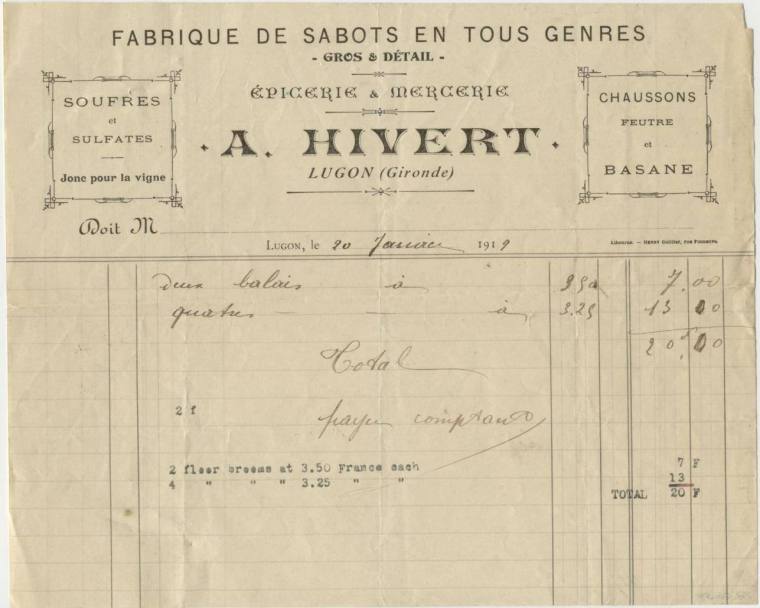 FABRIQUE DE SABOTS EN TOUS GENRES
- GROS & DÉTAIL -
ÉPICERIE & MERCERIE
SOUFRES
et
SULFATES
Jonc pour la vigne
· A. HIVERT ·
LUGON (Gironde)
CHAUSSONS
FEUTRE
et
BASANE
Doit M
LUGON, le 20 Janvier 1919
Libourne. — HENRY
deux balais à 3.50 7.00
quatre — — à 3.25 13 00
20f 00
Total
2 f
payé comptant
2 floor brooms at 3.50 France each 7 F
4 " " " 3.25 " " 13
TOTAL 20 F